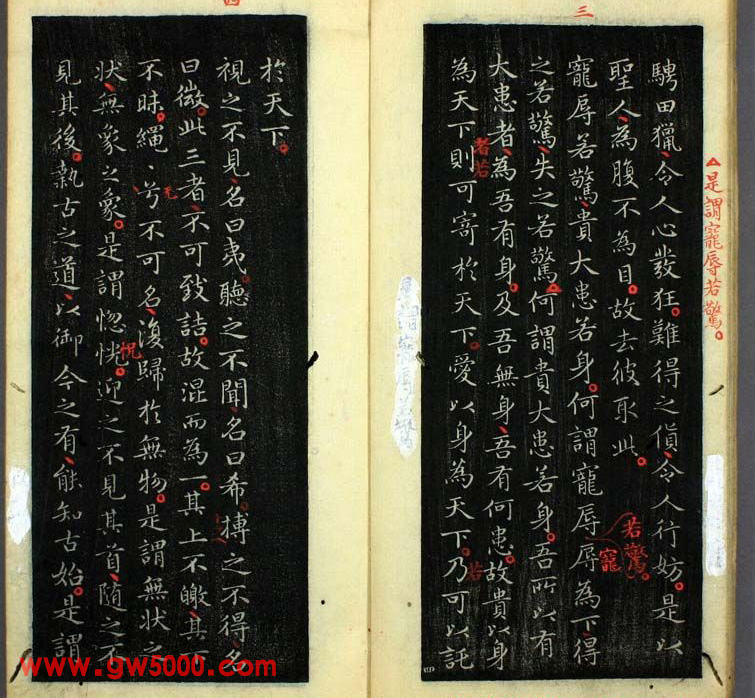 三
是謂寵辱若驚
騁田獵令人心發狂難得之貨令人行妨是以
聖人為腹不為目故去彼取此
寵辱若驚貴大患若身何謂寵辱辱為下得
若驚
寵
之若驚失之若驚何謂貴大患若身吾所以有
大患者為吾有身及吾無身吾有何患故貴以身
者若
為天下則可寄於天下愛以身為天下乃可以託
若
四
於天下
視之不見名曰夷聽之不聞名曰希搏之不得名
曰微此三者不可致詰故混而為一其上不皦其下
不昧繩〻兮不可名復歸於無物是謂無狀之
狀無象之象是謂惚恍迎之不見其首隨之不
怳
見其後執古之道以御今之有能知古始是謂
www.gw5000.com